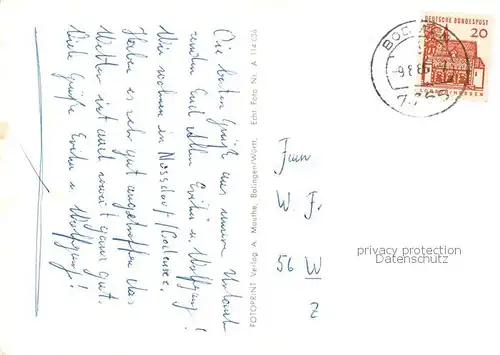 Die besten Grüße aus unserem Urlaub
senden Euch allen Erika u. Wolfgang!
Wir wohnen in Nussdorf/Bodensee.
Haben es sehr gut angetroffen. Das
Wetter ist auch soweit ganz gut.
Viele Grüße Erika u. Wolfgang!
FOTOPRINT Verlag A. Musthe, Balingen/Württ. Echt Foto Nr. A
DEUTSCHE BUNDESPOST
20
LORSCH/HESSEN
7765
W. F.
56 W
Z
privacy protection
Datenschutz